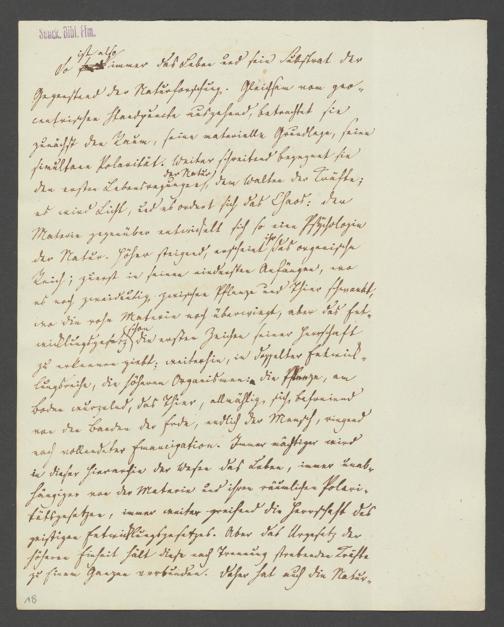 Senck. Bibl. Ffm.
ist also
So immer das Leben und sein Substrat der
Gegenstand der Naturforschung. Gleichsam vom geo-
centrischen Standpunkte ausgehend, betrachtet sie
zunächst den Raum, seine materielle Grundlage, seine
simultane Polarität. Weiter schreitend begegnet sie
der Natur
den ersten Lebensregungen, dem Walten der Kräfte;
es wird Licht, und es ordnet sich das Chaos: der
Materie gegenüber entwickelt sich so eine Psychologie
der Natur. Höher steigend, erscheint ihr das organische
Reich; zuerst in seinen niedersten Anfängen, wo
es noch zweideutig zwischen Pflanze und Thier schwankt,
wo die rohe Materie noch überwiegt, aber das Ent-
schon
wicklungsgesetz die ersten Zeichen seiner Herrschaft
zu erkennen giebt; weiterhin, in doppelter Entwick-
lungsreihe, die höheren Organismen: die Pflanze, am
Boden wurzelnd, das Thier, allmählig sich befreiend
von den Banden der Erde, endlich der Mensch, ringend
nach vollendeter Emancipation. Immer mächtiger wird
in dieser Hierarchie der Wesen das Leben, immer unab-
hängiger von der Materie und ihren räumlichen Polari-
tätsgesetzen, immer weiter greifend die Herrschaft des
geistigen Entwicklungsgesetzes. Aber das Urgesetz der
höheren Einheit hält diese nach Trennung strebenden Kräfte
zu einem Ganzen verbunden. Daher hat auch die Natur-
18